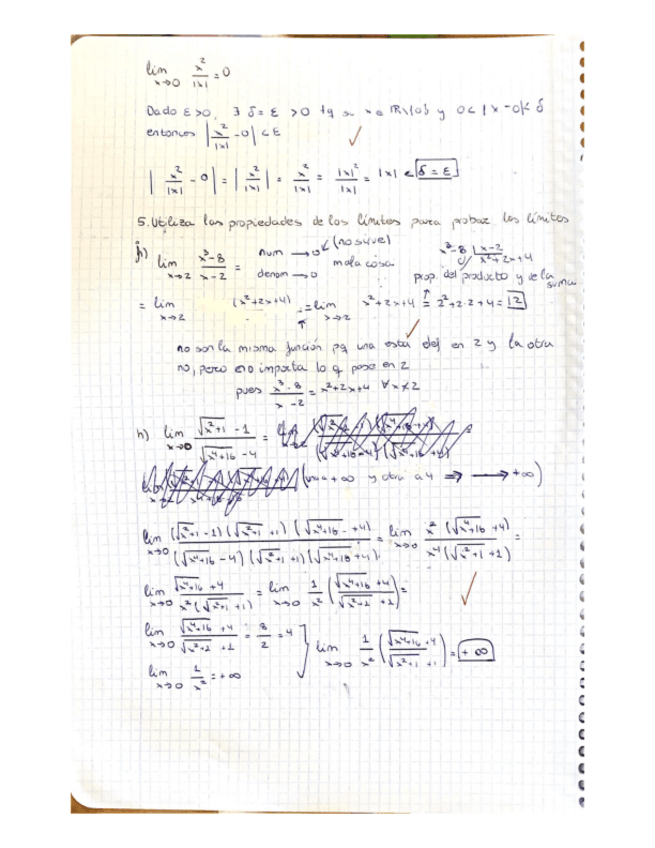 lim x→0 x²/|x| = 0
Dado ε>0, ∃ δ=ε >0 tq si x ∈ ℝ\{0} y 0<|x-0|<δ
entonces |x²/|x| - 0| < ε
|x²/|x| - 0| = |x²/|x|| = x²/|x| = |x|²/|x| = |x| < δ = ε
5. Utiliza las propiedades de los límites para probar los límites
lim x→2 (x³-8)/(x-2) = num → 0 denom → 0 (no sirve) mala cosa
x³-8 |x-2
0/ x²+2x+4
prop. del producto y de la suma
= lim x→2 (x²+2x+4) = lim x→2 x²+2x+4 = 2²+2·2+4 = 12
no son la misma función pq una está def en 2 y la otra
no, pero no importa lo q pase en 2
pues (x³-8)/(x-2) = x²+2x+4 ∀x≠2
h) lim x→0 (√(x²+1) - 1)/(√(x⁴+16) - 4) =
(una a +∞ y otra a 4 ⇒ → +∞)
lim x→0 (√(x²+1) -1)(√(x²+1) +1)(√(x⁴+16) +4)/((√(x⁴+16) -4)(√(x²+1) +1)(√(x⁴+16) +4)) = lim x→0 x²(√(x⁴+16) +4)/(x⁴(√(x²+1) +1)) =
lim x→0 (√(x⁴+16) +4)/(x²(√(x²+1) +1)) = lim x→0 1/x² ((√(x⁴+16) +4)/(√(x²+1) +1)) =
lim x→0 (√(x⁴+16) +4)/(√(x²+1) +1) = 8/2 = 4
lim x→0 1/x² = +∞
lim x→0 1/x² ((√(x⁴+16) +4)/(√(x²+1) +1)) = +∞